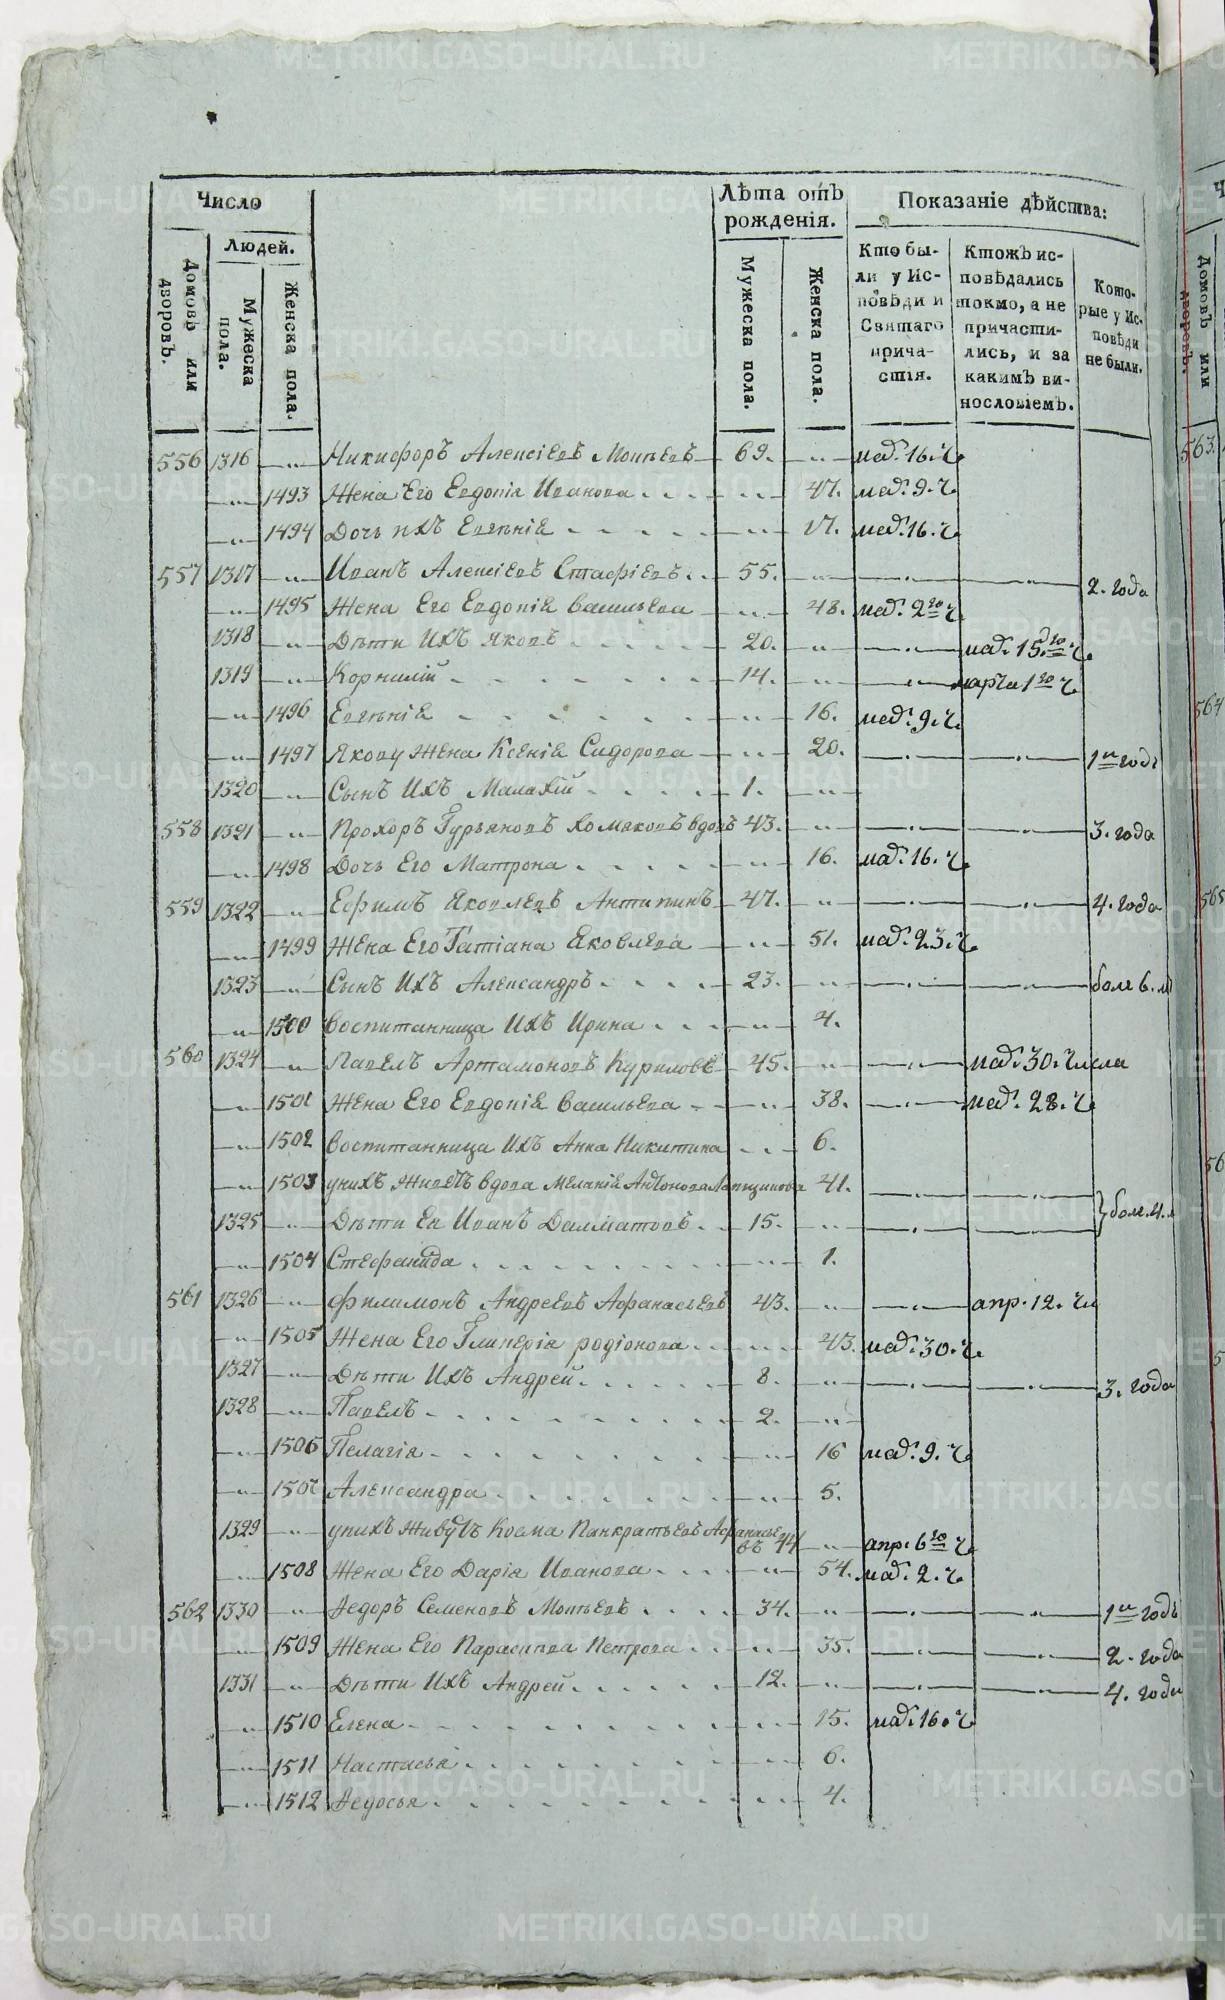 Число
Домовъ или дворовъ.
Людей.
Мужеска пола.
Женска пола.
Лѣта отъ рожденія.
Мужеска пола.
Женска пола.
Показаніе дѣйства:
Кто бы-
ли у Ис-
повѣди и
Святаго
прича-
стія.
Ктожъ ис-
повѣдались
токмо, а не
причасти-
лись, и за
какимъ ви-
нословіемъ.
Кото-
рые у Ис-
повѣди
не были.
556 1316 —„— Никифоръ Алексіевъ 69. —„— 16. ч.
—„— 1493 Жена Его Евдокія Иванова 47. 9. ч.
—„— 1494 Дочь ихъ Евгеніа 17. 16. ч.
557 1317 —„— Иванъ Алексіевъ Стафіевъ 55. —„— 2. года
—„— 1495 Жена Его Евдокіа Васильева —„— 48. 2го ч.
1318 —„— Дѣти Ихъ Яковъ 20. —„— 15. го ч.
1319 —„— Корнилій 14. —„— марта 1го ч.
—„— 1496 Евгеніа —„— 16. 9. ч.
—„— 1497 Якову Жена Ксеніа Сидорова —„— 20. 1н годъ
1320 —„— Сынъ Ихъ Малахій 1. —„—
558 1321 —„— Прохоръ Гурьяновъ Хомяковъ вдовъ 43. —„— 3. года
—„— 1498 Дочь Его Матрона —„— 16. 16. ч.
559 1322 —„— Ефимъ Яковлевъ Антипинъ 47. —„— 4. года
—„— 1499 Жена Его Татіана Яковлева —„— 51. 23. ч.
1323 —„— Сынъ Ихъ Александръ 23. —„— боле 6. л
—„— 1500 Воспитанница Ихъ Ирина —„— 4.
560 1324 —„— Павелъ Артамоновъ Куриловъ 45. —„— 30. числа
—„— 1501 Жена Его Евдокіа Васильева —„— 38. 28. ч.
—„— 1502 Воспитанница Ихъ Анна Никитина 6.
—„— 1503 унихъ Живетъ вдова Меланіа Антонова 41.
1325 —„— Дѣти Ея Иванъ Далматовъ 15. —„— боле 4. л
—„— 1504 Стефанида —„— 1.
561 1326 —„— Филимонъ Андреевъ Афанасьевъ 43. —„— апр. 12. ч.
—„— 1505 Жена Его Гликерія родіонова 43. 30. ч.
1327 —„— Дѣти Ихъ Андрей 8. —„— 3. года
1328 —„— Павелъ 2. —„—
—„— 1506 Пелагія —„— 16 9. ч.
—„— 1507 Александра —„— 5.
1329 —„— унихъ Живутъ Косма Панкратьевъ Афанасье
въ 44 —„— апр. 6го ч.
—„— 1508 Жена Его Дарія Иванова —„— 54. 2. ч.
562 1330 —„— Федоръ Семеновъ 34. —„— 1н годъ
—„— 1509 Жена Его Параскива Петрова —„— 35. 2. года
1331 —„— Дѣти Ихъ Андрей 12. —„— 4. годы
—„— 1510 Елена —„— 15. 16. ч.
—„— 1511 Настасья —„— 6.
—„— 1512 Федосья —„— 4.
563.
564
565
METRIKI.GASO-URAL.RU